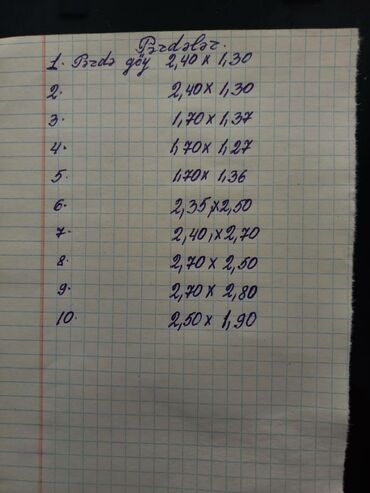 Pərdələr.
1. Pərdə göy 2,40 x 1,30
2. 2,40 x 1,30
3. 1,70 x 1,37
4. 1,70 x 1,27
5. 1,70 x 1,36
6. 2,35, x 2,50
7. 2,40, x 2,70
8. 2,70 x 2,50
9. 2,70 x 2,80
10. 2,50 x 1,90